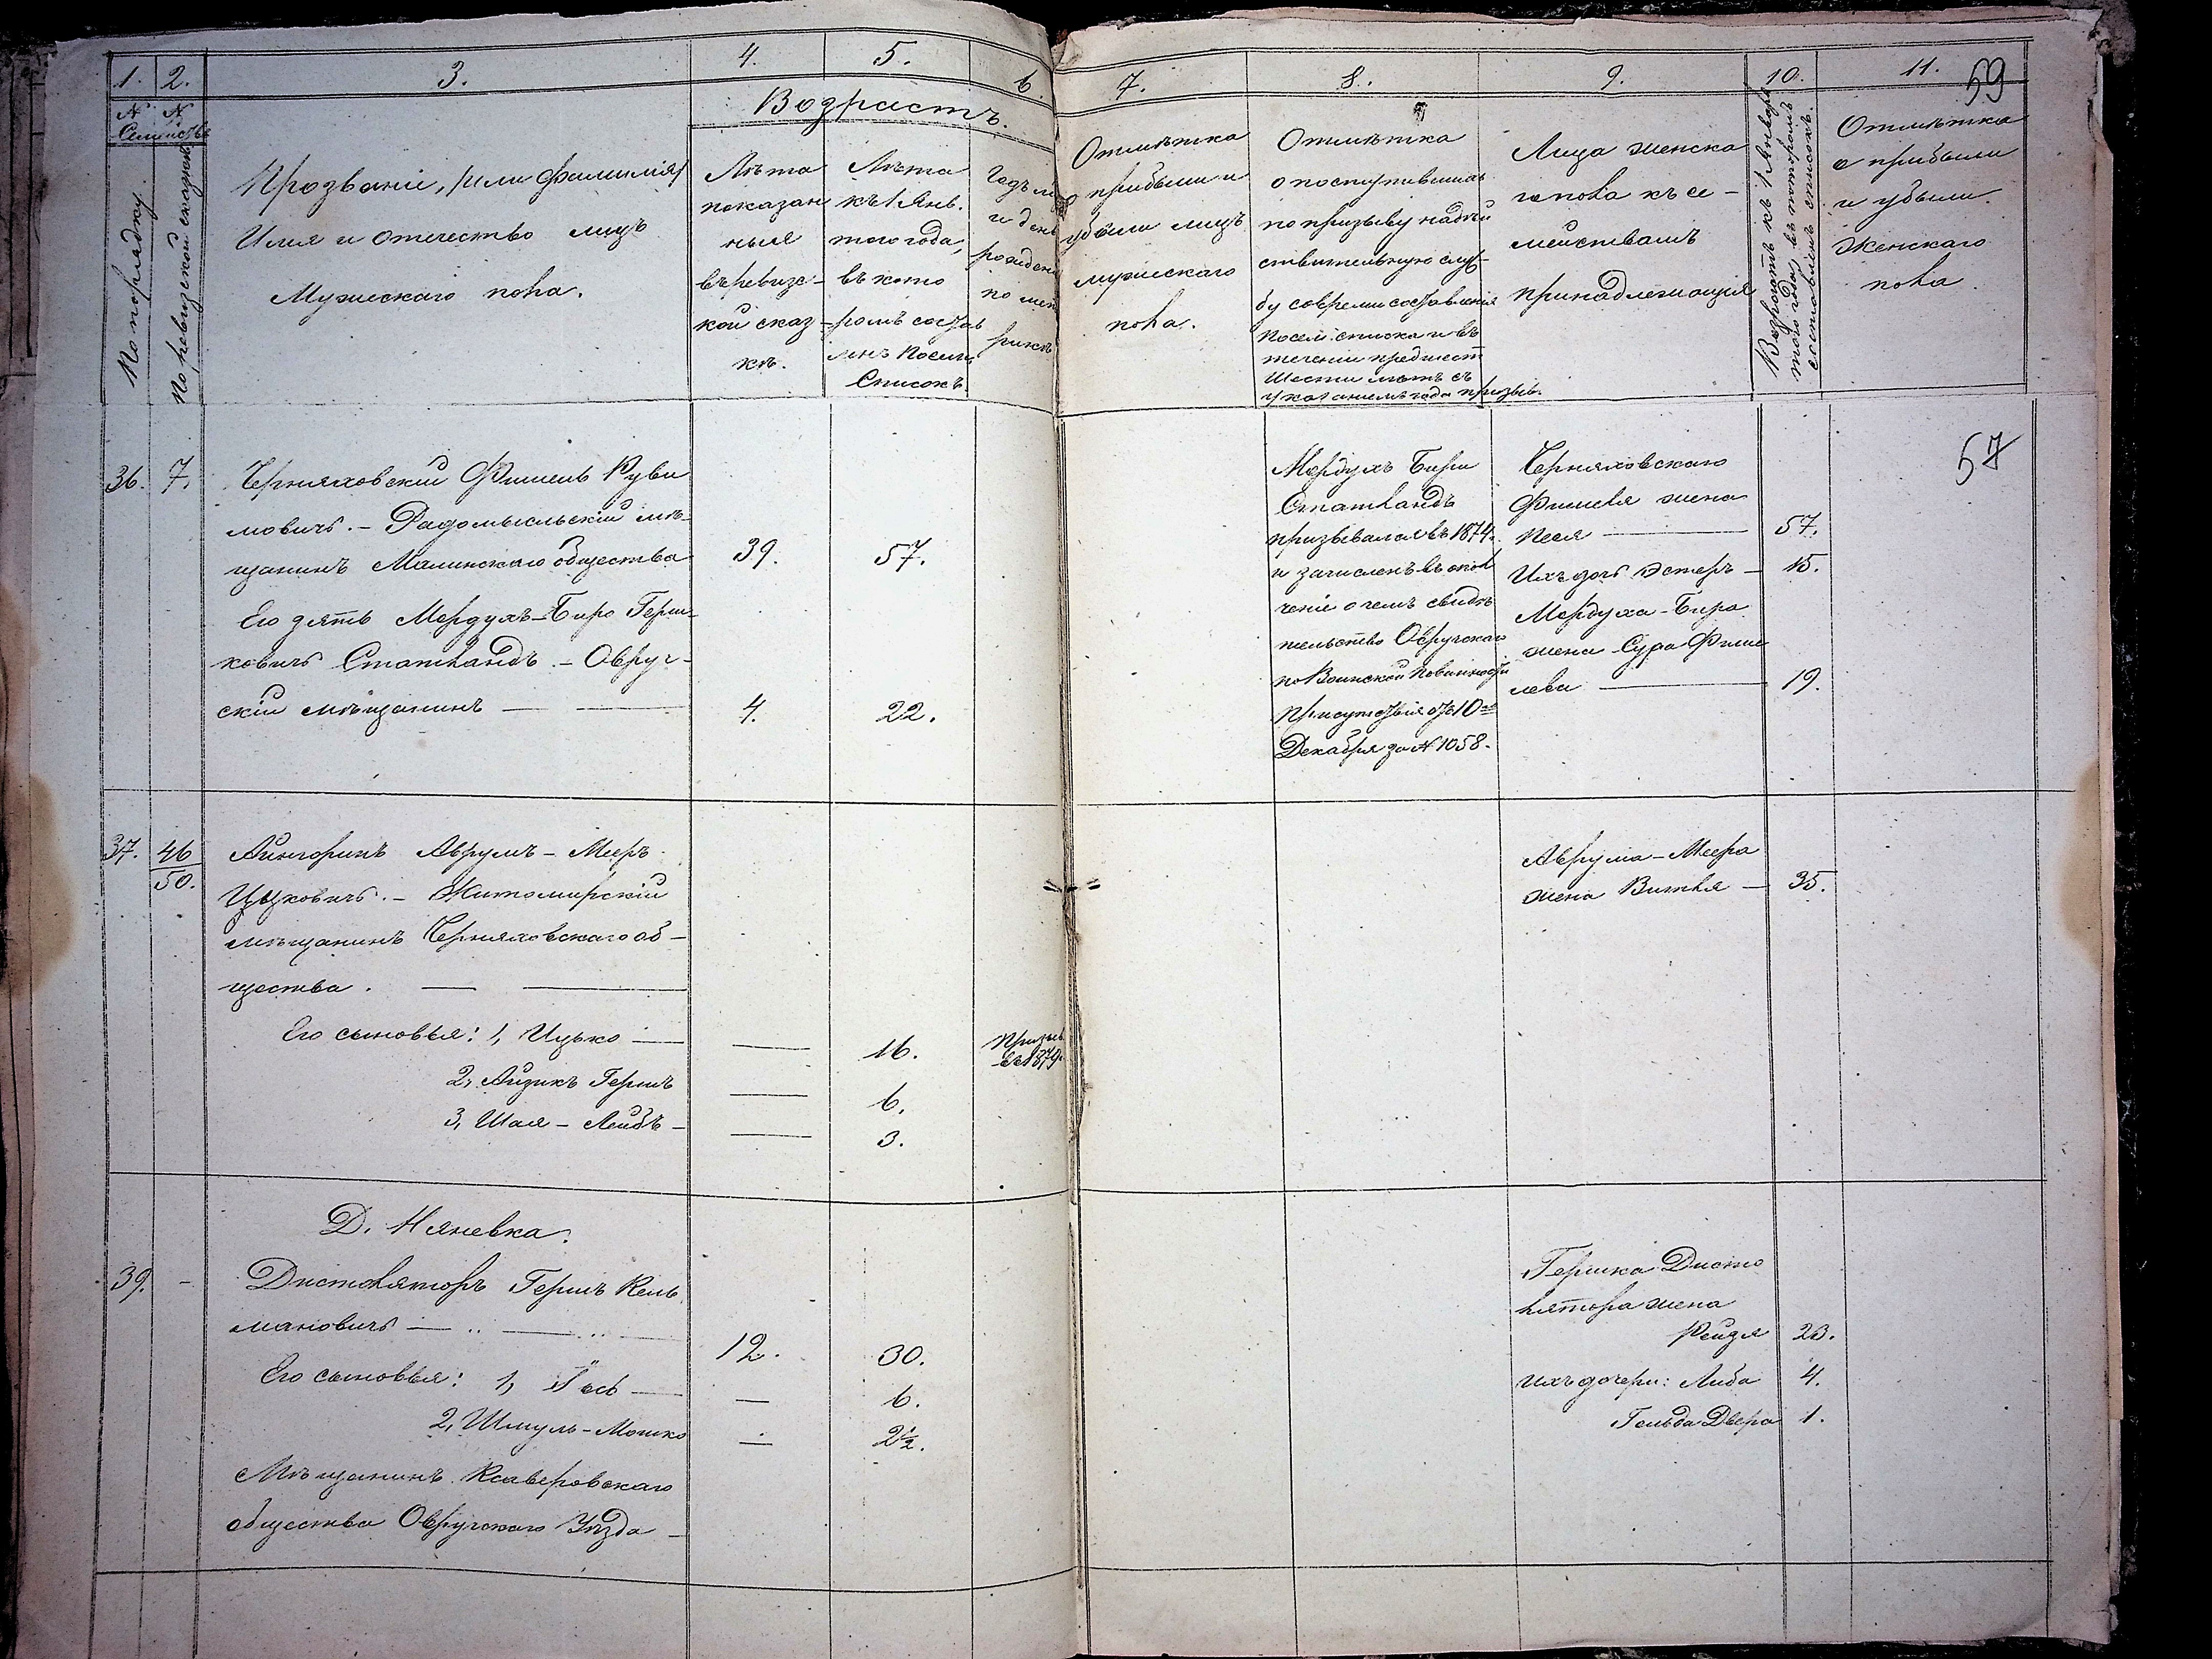 1. 2. 3. 4. 5. 6. 7. 8. 9. 10. 11. 59
№ №
Семействъ
По порядку.
По ревизской сказкѣ
Прозваніе, /или фамилія/
Имя и отчество лицъ
Мужескаго пола.
Возрастъ.
Лѣта
показан
ныя
въ ревизс-
кой сказ-
кѣ.
Лѣта
къ 1 Янв.
того года,
въ кото
ромъ состав
ленъ посем.
Списокъ.
Годъ мѣ
и день
рожден
по мет
рикѣ
Отмѣтка
о прибыли и
убыли лицъ
мужескаго
пола.
Отмѣтка
о поступившихъ
по призыву на дѣй
ствительную служ
бу со времени составленія
посем. списка и въ
теченіи предшест
шести лѣтъ съ
указаніемъ года призыв.
Лица женска
го пола къ се-
мействамъ
принадлежащія
Возрастъ къ 1 Января
того года, въ которомъ
составленъ списокъ.
Отмѣтка
о прибыли
и убыли
Женскаго
пола.
57
36. 7. Черняховскій Фишель Руви
мовичъ. - Радомысльскій мѣ-
щанинъ Малинскаго общества 39. 57.
Его зять Мордухъ-Биро Герш-
ковичъ Статландъ. - Овруч-
скій мѣщанинъ 4. 22.
Мордухъ Биро
Статландъ
призывался въ 1874 г.
и зачисленъ въ опол
ченіе о чемъ свидѣ
тельство Овручскаго
по Воинской Повинности
Присутствія отъ 10го
Декабря за № 1058.
Черняховскаго
Фишеля жена
Песя 57.
Ихъ дочь Эстеръ 15.
Мордуха-Биро
жена Сура Фише
лева 19.
37. 46/50. Айнгоринъ Аврумъ-Мееръ
Ицковичъ. - Житомирскій
мѣщанинъ Черняховскаго об-
щества.
Его сыновья: 1, Ицько 16. Призыв. въ 1879.
2, Айзикъ Гершъ 6.
3, Шая-Лейбъ 3.
Аврума-Меера
жена Витля 35.
Д. Няневка.
39. - Дистиляторъ Гершъ Кель
мановичъ 12. 30.
Его сыновья: 1, Іось 6.
2, Шмуль-Мошко 2½.
Мѣщанинъ Ксаверовскаго
общества Овручскаго Уѣзда
Гершка Дисти
лятора жена
Рейзя 23.
ихъ дочери: Либа 4.
Гольда Двера 1.